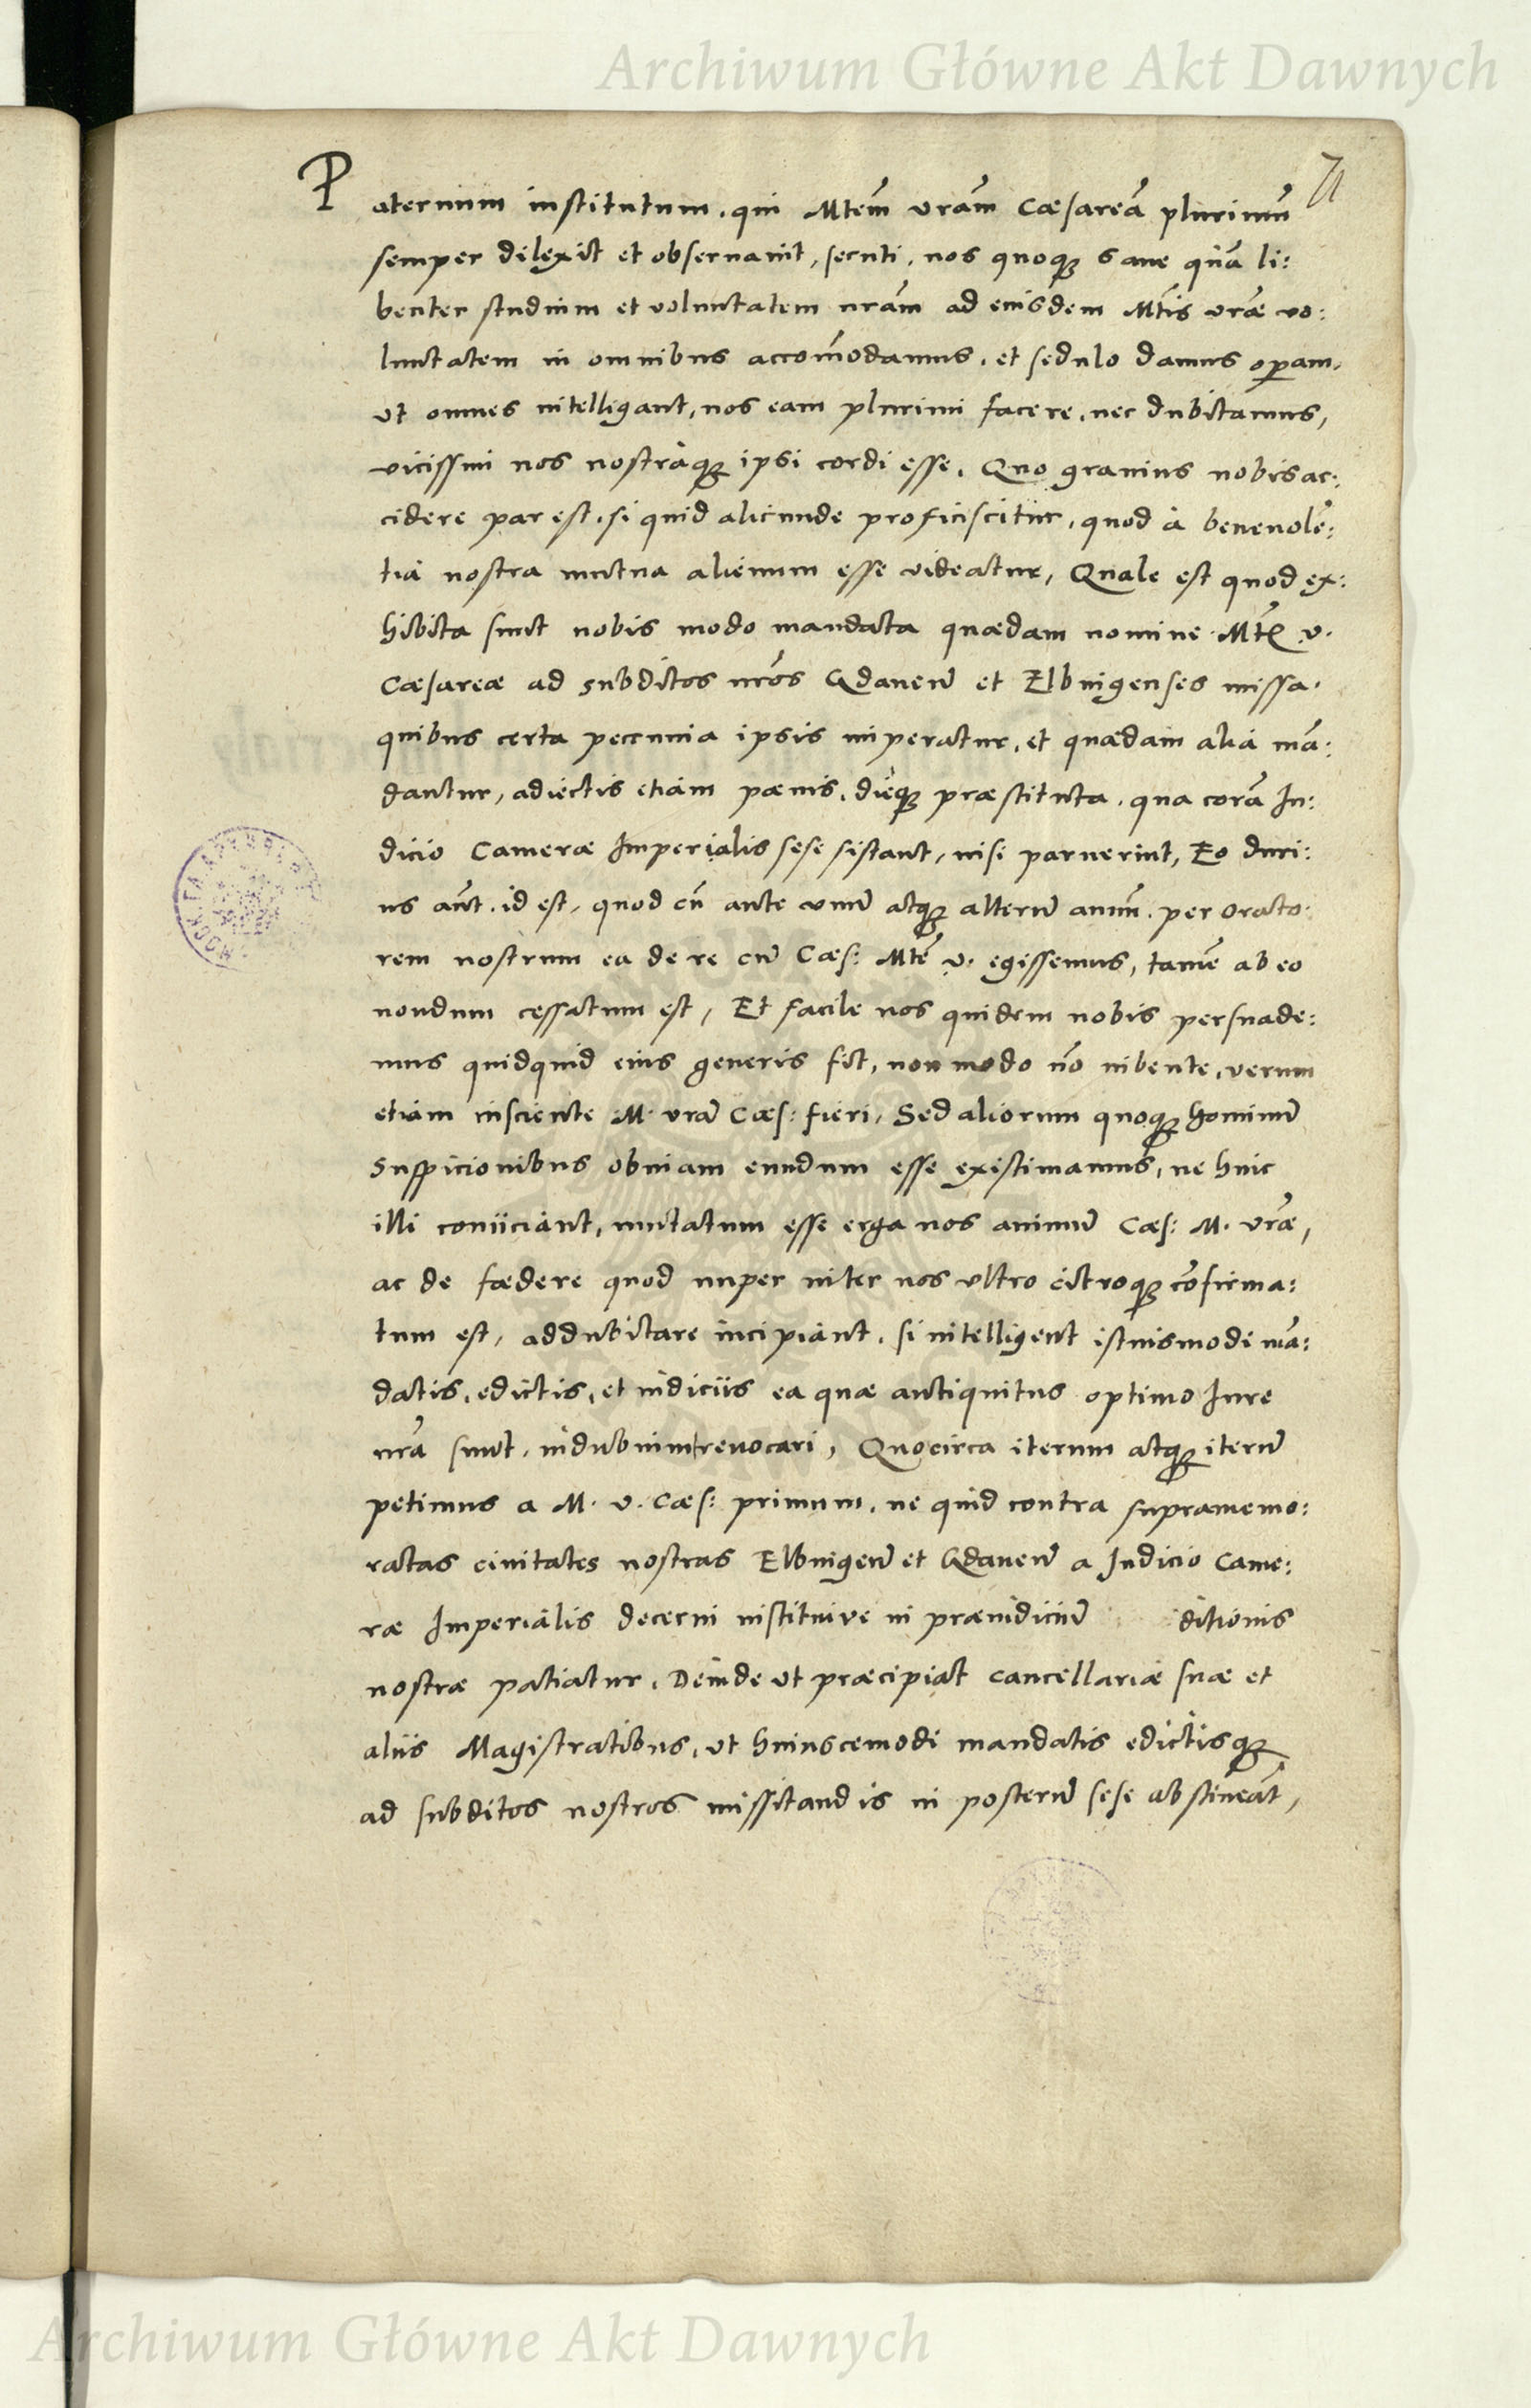 Archiwum Główne Akt Dawnych
71
Paternum institutum, qui Mtem vram Cæsaream plurimũ
semper dilexit et obseruauit, secuti, nos quoque sane quã li:
benter studium et voluntatem nram ad eiusdem Mtis vræ vo:
luntatem in omnibus accom̃odamus, et sedulo damus operam,
ut omnes intelligant, nos eam plurimi facere, nec dubitamus,
vicissim nos nostraque ipsi cordi esse. Quo grauius nobis ac:
cidere par est, si quid alicunde proficiscitur, quod à beneuolẽ:
tia nostra mutua alienum esse videatur, Quale est quod ex:
hibita sunt nobis modo mandata quædam nomine Mtis v.
Cæsareæ ad subditos nros Gdaneñ et Elbingenses missa.
quibus certa pecunia ipsis imperatur, et quædam alia mã:
dantur, adiectis etiam pœnis, dieque præstituta, qua corã Iu:
dicio Cameræ Imperialis sese sistant, nisi paruerint, Eo duri:
us aũt id est, quod cũ ante unũ atque alterũ annũ per orato:
rem nostrum ea de re cũ Cæs: Mte v. egissemus, tamẽ ab eo
nondum cessatum est, Et facile nos quidem nobis persuade:
mus quidquid eius generis fit, non modo nõ iubente, verum
etiam insciente M. vra Cæs: fieri, Sed aliorum quoque hominũ
suspicionibus obuiam eundum esse existimamus, ne huic
illi coniiciant, mutatum esse erga nos animũ Cæs: M. vræ,
ac de fœdere quod nuper inter nos ultro citroque cõfirma:
tum est, addubitare incipiant, si intelligent istiusmodi mã:
datis, edictis, et iudiciis ea quæ antiquitus optimo Iure
nra sunt, in dubium reuocari, Quocirca iterum atque iterũ
petimus a M. v. Cæs: primum, ne quid contra supramemo:
ratas ciuitates nostras Elbingeñ et Gdaneñ a Iudicio Came:
ræ Imperialis decerni instituive in præiudiciũ ditionis
nostræ patiatur, Deinde ut præcipiat Cancellariæ suæ et
aliis Magistratibus, ut huiuscemodi mandatis edictisque
ad subditos nostros missitandis in posterũ sese abstineãt,
Archiwum Główne Akt Dawnych